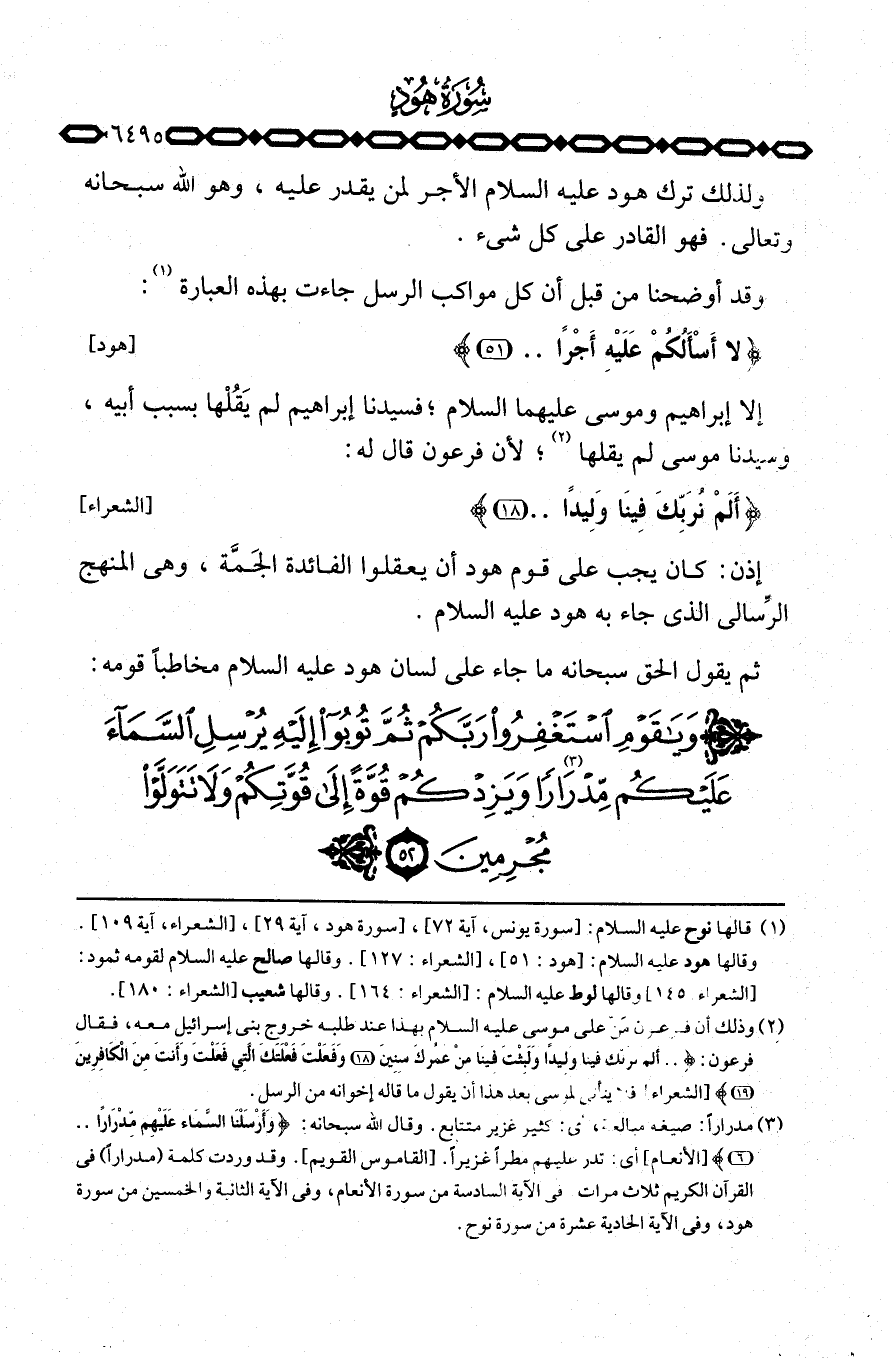 سُورَةُ هُودٍ
٦٤٩٥
ولذلك ترك هود عليه السلام الأجر لمن يقدر عليه ، وهو الله سبحانه
وتعالى . فهو القادر على كل شىء .
وقد أوضحنا من قبل أن كل مواكب الرسل جاءت بهذه العبارة (١) :
﴿ لا أَسْأَلُكُمْ عَلَيْهِ أَجْرًا .. (٥١) ﴾ [هود]
إلا إبراهيم وموسى عليهما السلام ؛ فسيدنا إبراهيم لم يَقُلْها بسبب أبيه ،
وسيدنا موسى لم يقلها (٢) ؛ لأن فرعون قال له :
﴿ أَلَمْ نُرَبِّكَ فِينَا وَلِيدًا .. (١٨) ﴾ [الشعراء]
إذن : كان يجب على قوم هود أن يعقلوا الفائدة الجَمَّة ، وهى المنهج
الرِّسالى الذى جاء به هود عليه السلام .
ثم يقول الحق سبحانه ما جاء على لسان هود عليه السلام مخاطباً قومه :
وَيَٰقَوْمِ ٱسْتَغْفِرُوا۟ رَبَّكُمْ ثُمَّ تُوبُوٓا۟ إِلَيْهِ يُرْسِلِ ٱلسَّمَآءَ
عَلَيْكُم مِّدْرَارًا (٣) وَيَزِدْكُمْ قُوَّةً إِلَىٰ قُوَّتِكُمْ وَلَا تَتَوَلَّوْا۟
مُجْرِمِينَ ٥٢
(١) قالها نوح عليه السلام : [سورة يونس، آية ٧٢] ، [سورة هود ، آية ٢٩] ، [الشعراء، آية ١٠٩] .
وقالها هود عليه السلام : [هود : ٥١] ، [الشعراء : ١٢٧] . وقالها صالح عليه السلام لقومه ثمود :
[الشعراء ١٤٥] وقالها لوط عليه السلام : [الشعراء : ١٦٤] . وقالها شعيب [الشعراء : ١٨٠] .
(٢) وذلك أن فرعون مَنَّ على موسى عليه السلام بهذا عند طلبه خروج بنى إسرائيل معه ، فقال
فرعون : ﴿ .. ألم نربك فينا وليدًا ولبثت فينا من عمرك سنين (١٨) وفعلت فعلتك التي فعلت وأنت من الكافرين
(١٩) ﴾ [الشعراء] فلا يتأتى لموسى بعد هذا أن يقول ما قاله إخوانه من الرسل .
(٣) مدراراً : صيغة مبالغة ، أى : كثير غزير متتابع . وقال الله سبحانه : ﴿ وَأَرْسَلْنَا السَّمَاء عَلَيْهِم مِّدْرَارًا ..
(٦) ﴾ [الأنعام] أى : تدر عليهم مطراً غزيراً . [القاموس القويم] . وقد وردت كلمة (مدراراً) فى
القرآن الكريم ثلاث مرات فى الآية السادسة من سورة الأنعام ، وفى الآية الثانية والخمسين من سورة
هود ، وفى الآية الحادية عشرة من سورة نوح .